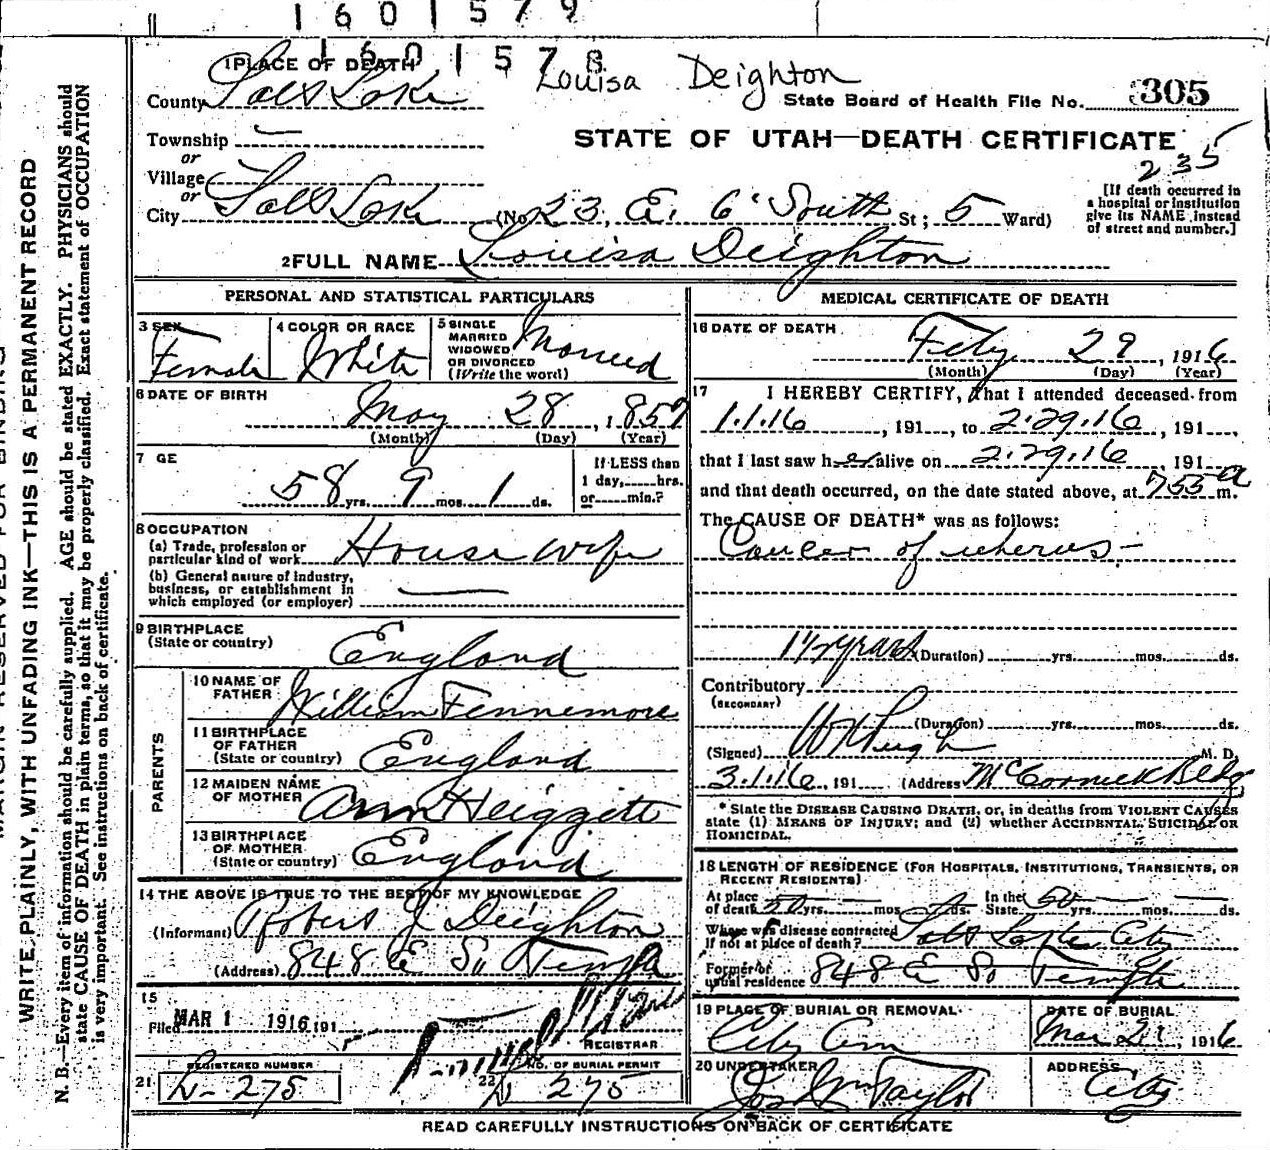 1601579
1601578
1 PLACE OF DEATH
Louisa Deighton
County Salt Lake
State Board of Health File No. 305
Township —
STATE OF UTAH—DEATH CERTIFICATE
or
235
Village
or
City Salt Lake (No. 23, E. 6' South St; 5 Ward)
[If death occurred in
a hospital or institution
give its NAME instead
of street and number.]
2 FULL NAME Louisa Deighton
PERSONAL AND STATISTICAL PARTICULARS
3 SEX
Female
4 COLOR OR RACE
White
5 SINGLE
MARRIED
WIDOWED
OR DIVORCED
(Write the word)
Married
6 DATE OF BIRTH
May 28, 1857
(Month) (Day) (Year)
7 GE
58 yrs. 9 mos. 1 ds.
If LESS than
1 day,......hrs.
or......min.?
8 OCCUPATION
(a) Trade, profession or
particular kind of work House wife
(b) General nature of industry,
business, or establishment in
which employed (or employer) —
9 BIRTHPLACE
(State or country) England
PARENTS
10 NAME OF
FATHER William Fennemore
11 BIRTHPLACE
OF FATHER
(State or country) England
12 MAIDEN NAME
OF MOTHER Ann Heiggett
13 BIRTHPLACE
OF MOTHER
(State or country) England
14 THE ABOVE IS TRUE TO THE BEST OF MY KNOWLEDGE
(Informant) Robert J Deighton
(Address) 848 E So Temple
15
Filed MAR 1 1916, 191
REGISTRAR
REGISTERED NUMBER
21 D- 275
NO. OF BURIAL PERMIT
22 D 275
MEDICAL CERTIFICATE OF DEATH
16 DATE OF DEATH
Feby 29, 1916
(Month) (Day) (Year)
17 I HEREBY CERTIFY, that I attended deceased from
1.1.16, 191...., to 2.29.16, 191....,
that I last saw her alive on 2.29.16, 191
and that death occurred, on the date stated above, at 755 a m.
The CAUSE OF DEATH* was as follows:
Cancer of uterus —
1½ years (Duration) yrs. mos. ds.
Contributory
(SECONDARY)
(Duration) yrs. mos. ds.
(Signed) W H Pugh M. D.
3.1.16, 191 (Address) McCornick Bldg
* State the DISEASE CAUSING DEATH, or, in deaths from VIOLENT CAUSES
state (1) MEANS OF INJURY; and (2) whether ACCIDENTAL, SUICIDAL OR
HOMICIDAL.
18 LENGTH OF RESIDENCE (FOR HOSPITALS, INSTITUTIONS, TRANSIENTS, OR
RECENT RESIDENTS)
At place
of death 50 yrs. — mos. — ds.
In the
State 50 yrs. — mos. — ds.
Where was disease contracted
if not at place of death? Salt Lake City
Former or
usual residence 848 E So Temple
19 PLACE OF BURIAL OR REMOVAL
City Cem
DATE OF BURIAL
Mar 2, 1916
20 UNDERTAKER
Jos Wm Taylor
ADDRESS
City
READ CAREFULLY INSTRUCTIONS ON BACK OF CERTIFICATE
WRITE PLAINLY, WITH UNFADING INK—THIS IS A PERMANENT RECORD
N. B.—Every item of information should be carefully supplied. AGE should be stated EXACTLY. PHYSICIANS should
state CAUSE OF DEATH in plain terms, so that it may be properly classified. Exact statement of OCCUPATION
is very important. See instructions on back of certificate.